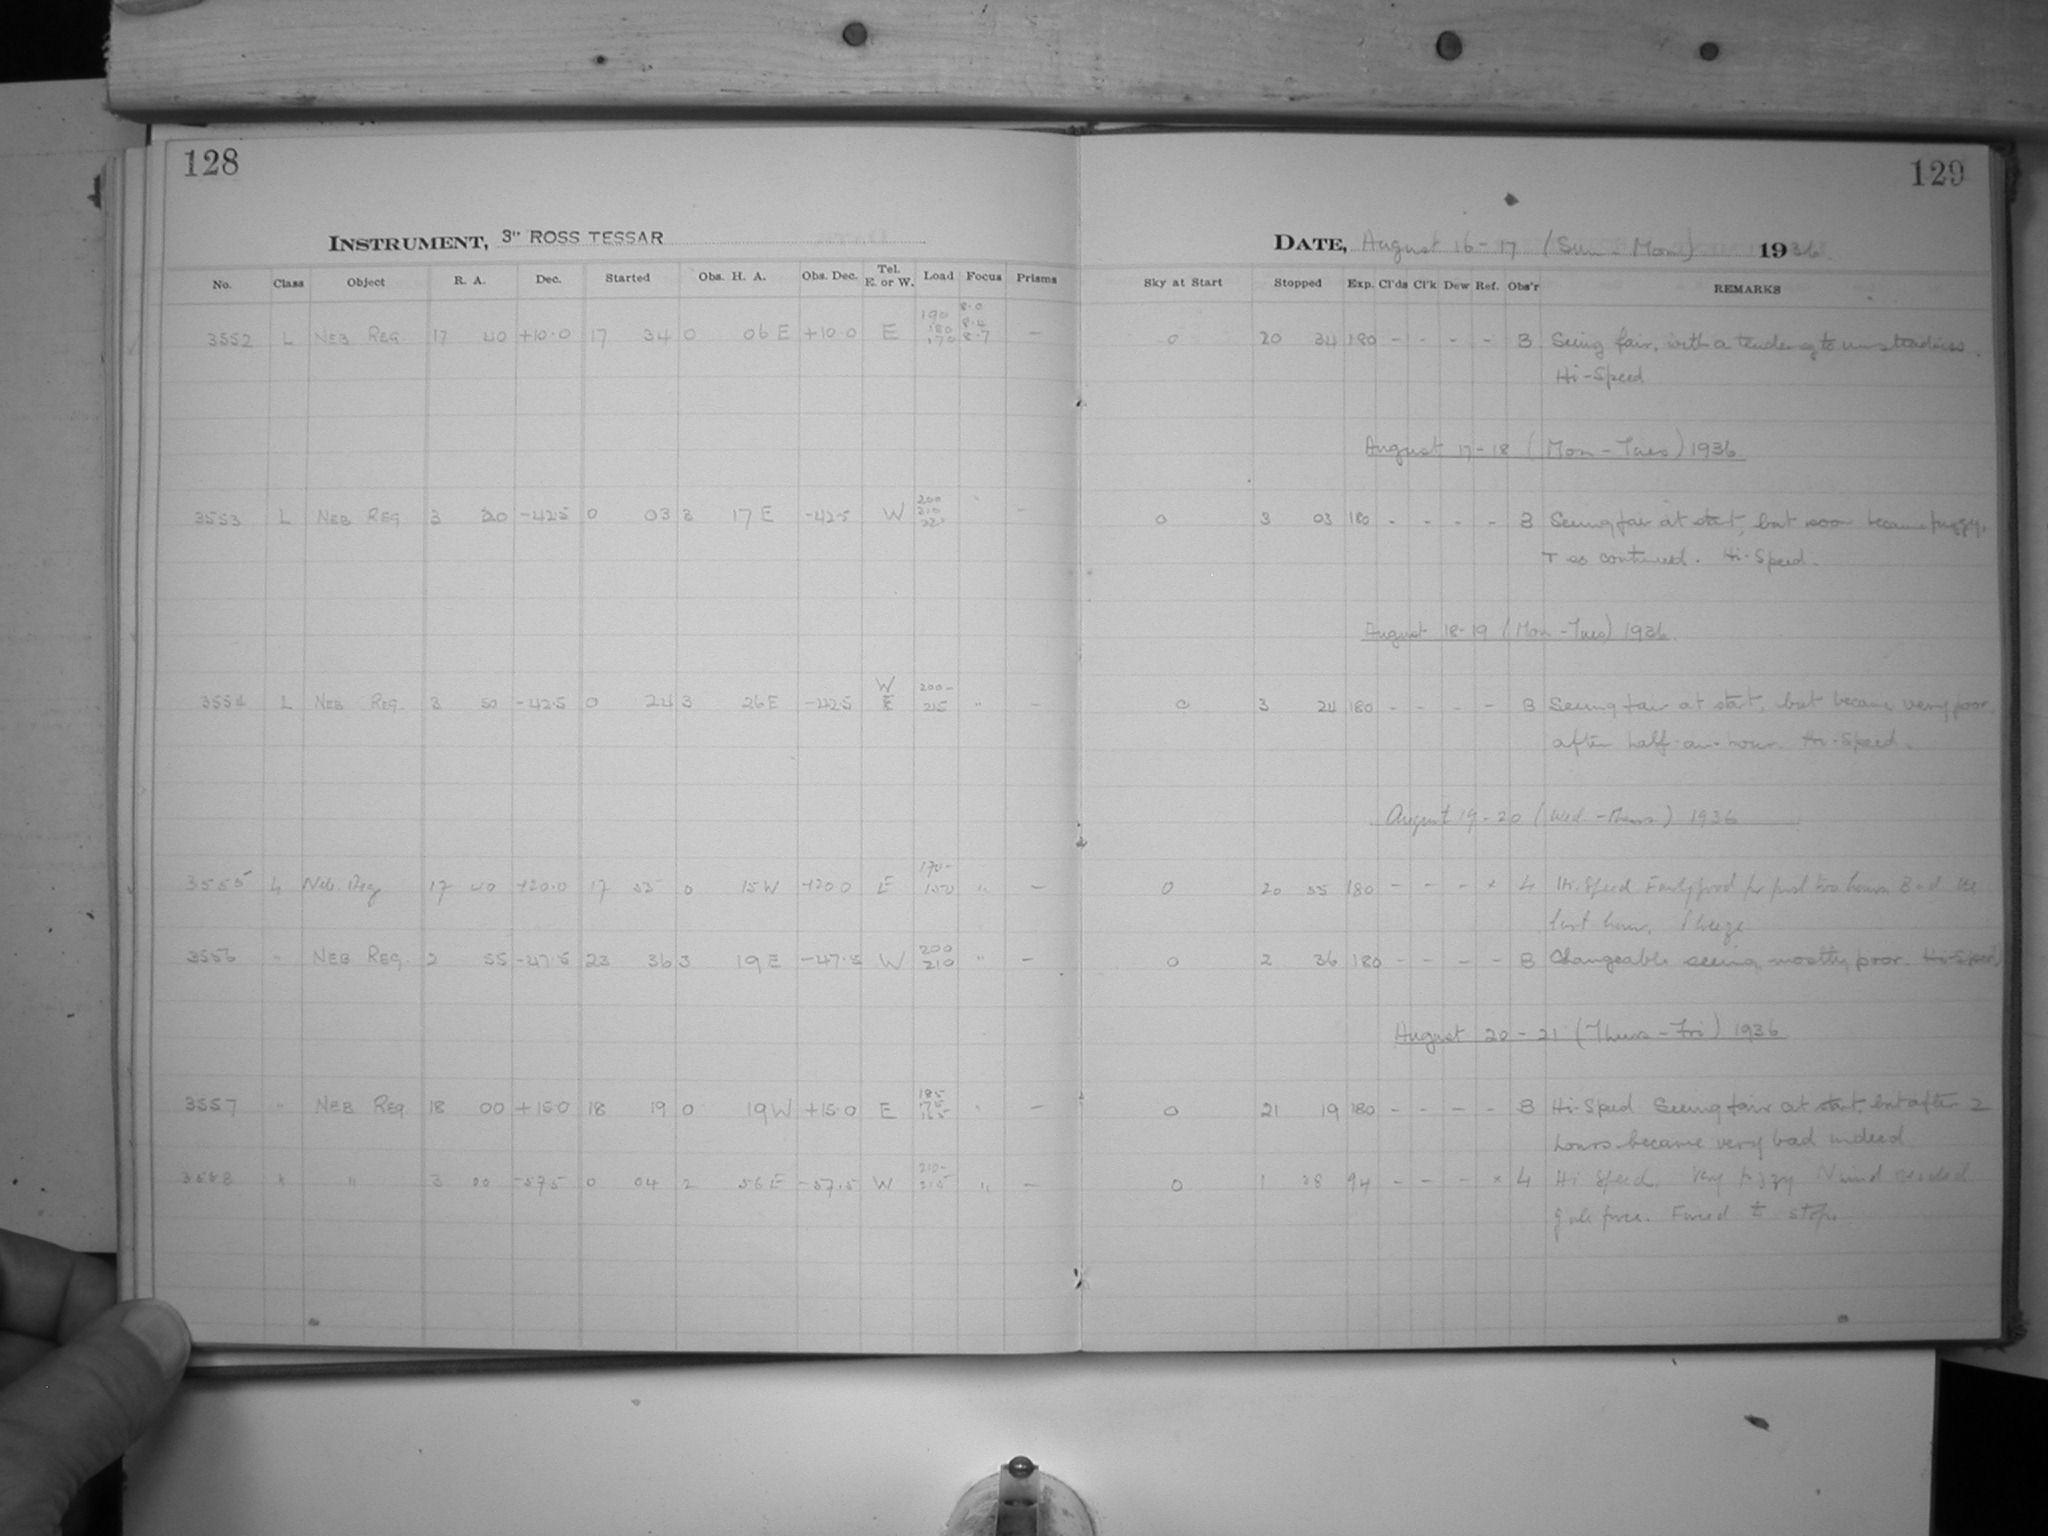 128
129
INSTRUMENT, 3" ROSS TESSAR
DATE, August 16-17 (Sun - Mon) 1936
No. Class Object R. A. Dec. Started Obs. H. A. Obs. Dec. Tel. E. or W. Load Focus Prisms Sky at Start Stopped Exp. Cl'ds Cl'k Dew Ref. Obs'r REMARKS
3552 L NEB REG. 17 40 +10.0 17 34 0 06 E +10.0 E 190 180 170 8.0 8.4 8.7 – 0 20 34 180 - - - - B Seeing fair, with a tendency to unsteadiness.
Hi-Speed
August 17-18 (Mon - Tues) 1936
3553 L NEB REG 3 20 -42.5 0 03 3 17 E -42.5 W 200 210 220 " – 0 3 03 180 - - - - B Seeing fair at start, but soon became fuzzy,
+ so continued. Hi-Speed.
August 18-19 (Mon - Tues) 1936
3554 L NEB REG. 3 50 -42.5 0 24 3 26 E -42.5 W E 200- 215 " – 0 3 24 180 - - - - B Seeing fair at start, but became very poor,
after half-an-hour. Hi-Speed.
August 19-20 (Wed - Thurs) 1936
3555 L Neb. Reg 17 40 +20.0 17 55 0 15 W +20.0 E 170- 150 " – 0 20 55 180 - - - x 4 Hi-Speed Fairly good for first two hours Bad the
last hour. Breeze
3556 " NEB REG. 2 55 -47.5 23 36 3 19 E -47.5 W 200 210 " – 0 2 36 180 - - - - B Changeable seeing, mostly poor. Hi-Speed
August 20-21 (Thurs - Fri) 1936
3557 " NEB REG. 18 00 +15.0 18 19 0 19 W +15.0 E 185 175 165 " – 0 21 19 180 - - - - B Hi-Speed Seeing fair at start, but after 2
hours became very bad indeed
3558 " " 3 00 -57.5 0 04 2 56 E -57.5 W 210- 215 " – 0 1 38 94 - - - x 4 Hi Speed. Very fuzzy N wind reached
gale force. Forced to stop.